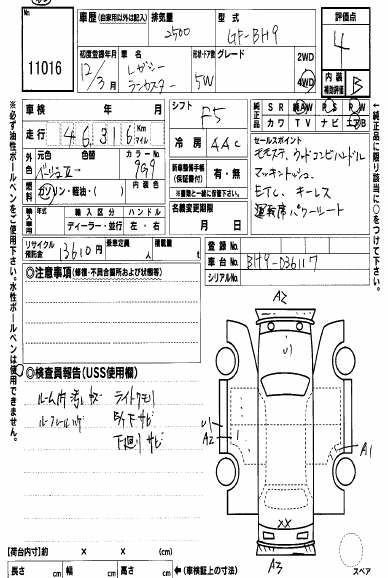 No.
11016
車歴 (自家用以外は記入)
排気量
2500
型式
GF-BH9
評価点
4
初度登録年月
12/3月
車名
レガシー
ランカスター
形状・ドア数
5W
グレード
2WD
4WD
内装
補助評価
B
車検
年
月
シフト
F5
純正品
SR
AW
PS
PW
カワ
TV
ナビ
エアB
走行
46316
Km
マイル
冷房
AAC
セールスポイント
ウッドコンビハンドル
マッキントッシュ
ETC、キーレス
運転席パワーシート
元色
ベージュII
色替
カラーNo.
9G9
燃料
ガソリン・軽油・( )
内装色
新車整備手帳
(保証書付)
有・無
※車輌と一緒に保管下さい
輸入車用
年式
輸入区分
ディーラー・並行
ハンドル
左・右
名義変更期限
月
日
リサイクル預託金
13610円
乗車定員
人
積載量
t
登録No.
車台No.
BH9-036117
シリアルNo.
◎注意事項(修復・不具合箇所および状態等)
◎検査員報告(USS使用欄)
ルーム内汚れキズ
ライトクモリ
下サビ
下廻りサビ
A2
U1
U1
A2
A1
XX
A3
スペア
【荷台内寸】約
×
×
(cm)
長さ
cm
幅
cm
高さ
cm
←(車検証上の寸法)
※必ず油性ボールペンをご使用下さい。水性ボールペンは使用できません。
※純正品に限り該当に○をつけて下さい。